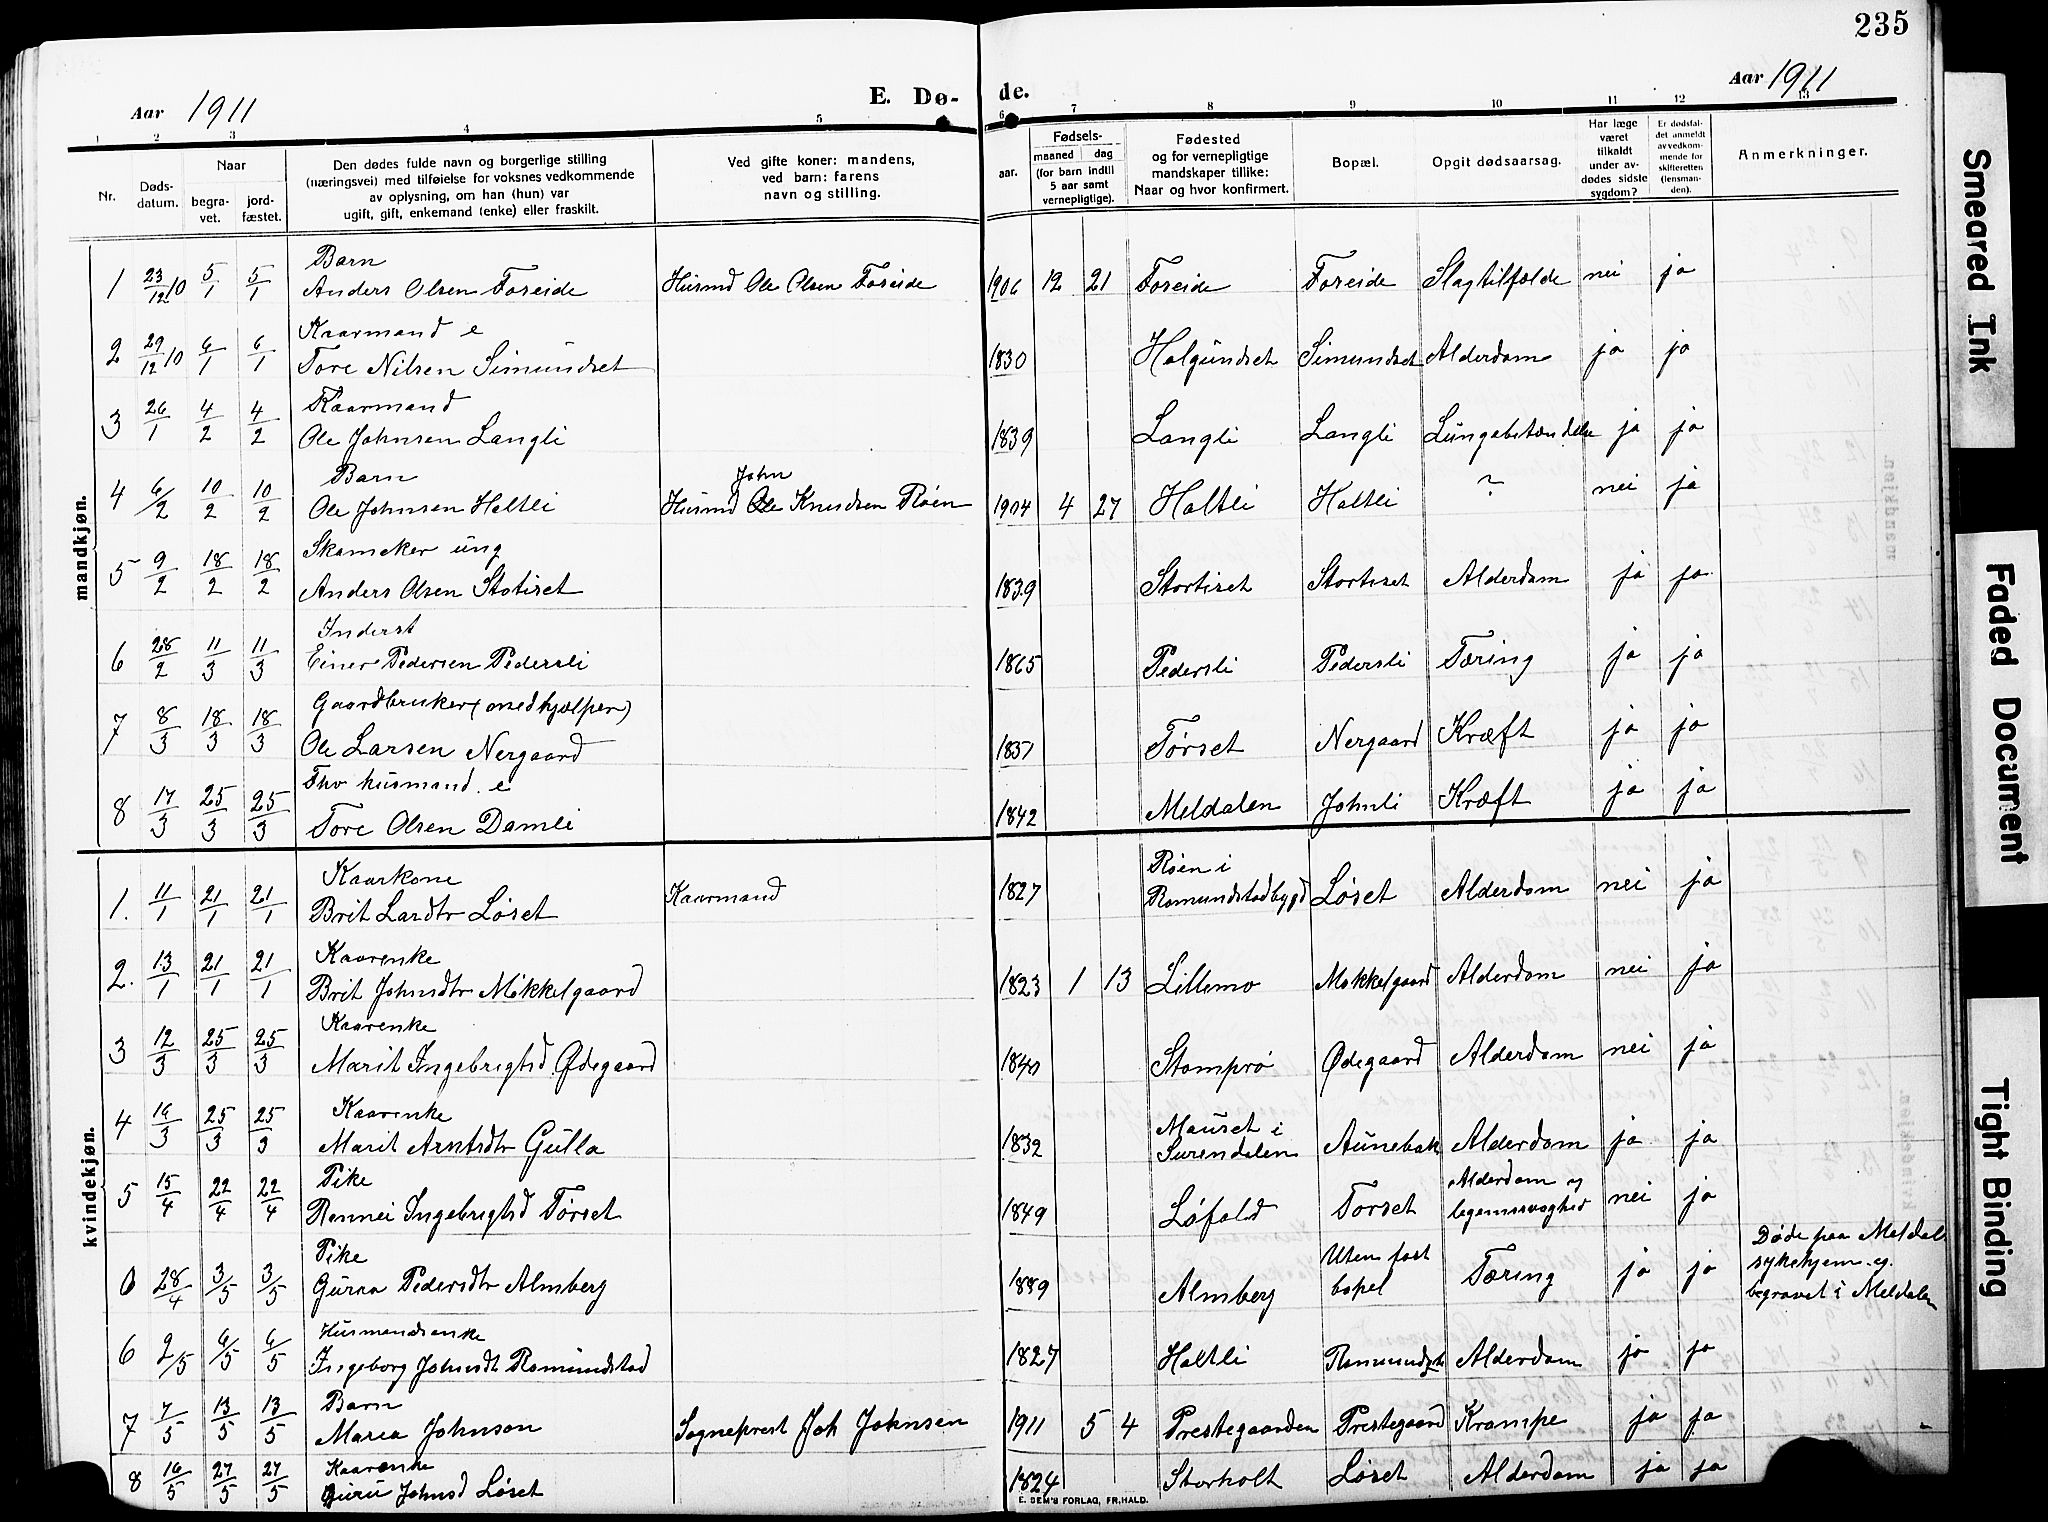 235
Aar 1911
E. Dø-
de.
Aar 1911
1 2 3 4 5
6 7 8 9 10 11 12 13
Nr.
Døds-
datum.
Naar
begra-
vet.
jord-
fæstet.
Den dødes fulde navn og borgerlige stilling
(næringsvei) med tilføielse for voksnes vedkommende
av oplysning, om han (hun) var
ugift, gift, enkemand (enke) eller fraskilt.
Ved gifte koner: mandens,
ved barn: farens
navn og stilling.
aar.
Fødsels-
maaned dag
(for barn indtil
5 aar samt
vernepligtige).
Fødested
og for vernepligtige
mandskaper tillike:
Naar og hvor konfirmert.
Bopæl.
Opgit dødsaarsag.
Har læge
været
tilkaldt
under av-
dødes sidste
sygdom?
Er dødsfal-
det anmeldt
av vedkom-
mende for
skifteretten
(lensman-
den).
Anmerkninger.
mandkjøn.
Barn
1 23/12 10 5/1 5/1 Anders Olsen Foseide Husmd Ole Olsen Foseide 1906 12 21 Foseide Foseide Slagtilfælde nei ja
Kaarmand e
2 29/12 10 6/1 6/1 Tore Nilsen Simundset 1830 Halgundset Simundset Alderdom ja ja
Kaarmand
3 26/1 4/2 4/2 Ole Johnsen Langli 1839 Langli Langli Lungebetændelse ja ja
Barn John
4 6/2 10/2 10/2 Ole Johnsen Holtli Husmd Ole Knudsen Røen 1904 4 27 Holtli Holtli ? nei ja
Skomaker ung
5 9/2 18/2 18/2 Anders Olsen Stotiset 1839 Stortiset Stortiset Alderdom ja ja
Inderst
6 28/2 11/3 11/3 Einer Pedersen Pedersli 1865 Pedersli Pedersli Tæring ja ja
Gaardbruker (medhjælper)
7 8/3 18/3 18/3 Ole Larsen Nergaard 1837 Tørset Nergaard Kræft ja ja
Fhv husmand. e
8 17/3 25/3 25/3 Tore Olsen Damli 1842 Meldalen Johnli Kræft ja ja
kvindekjøn.
Kaarkone Røen i
1. 11/1 21/1 21/1 Brit Larsdtr Løset Kaarmand 1827 Romundstadbygd Løset Alderdom nei ja
Kaarenke
2. 13/1 21/1 21/1 Brit Johnsdtr Mikkelgaard 1823 1 13 Lillemo Mikkelgaard Alderdom nei ja
Kaarenke
3 12/3 25/3 25/3 Marit Ingebrigtsd Ødegaard 1840 Stomprø Ødegaard Alderdom nei ja
Kaarenke Mauset i
4 19/3 25/3 25/3 Marit Arntsdtr Gulla 1832 Surendalen Aunebak Alderdom ja ja
Pike Alderdom og
5 15/4 22/4 22/4 Rennei Ingebrigtsd Tørset 1849 Løfald Torset legemssvaghed nei ja
Pike Uten fast Døde paa Meldal
6 28/4 3/5 3/5 Guraa Pedersdtr Almberg 1889 Almberg bopel Tæring ja ja sykehjem og
begravet i Meldalen
Husmandsenke
6 2/5 6/5 6/5 Ingeborg Johnsdt Romundstad 1827 Holtli Romundst Alderdom ja ja
Barn
7 7/5 13/5 13/5 Maria Johnson Sogneprest Joh Johnsen 1911 5 4 Prestegaarden Prestegaard Krampe ja ja
Kaarenke
8 16/5 27/5 27/5 Guru Johnsd Løset 1824 Storholt Løset Alderdom ja ja
E. SEM'S FORLAG, FR.HALD.
Smeared Ink
Faded Document
Tight Binding